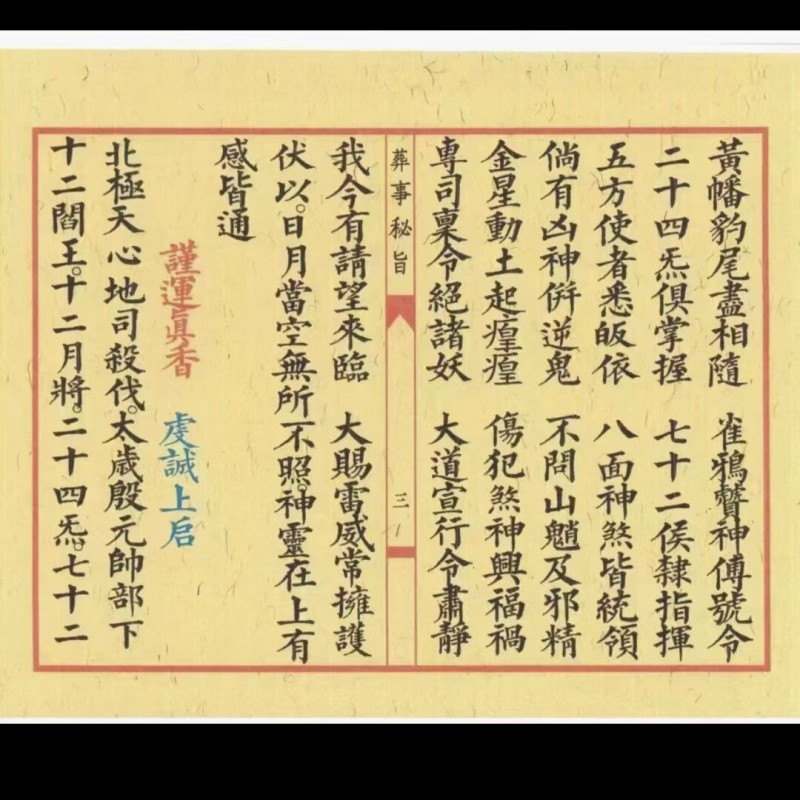 黃幡豹尾盡相隨　雀鴉瞽神傅號令
二十四炁俱掌握　七十二侯隸指揮
五方使者悉皈依　八面神煞皆統領
倘有凶神併逆鬼　不問山魈及邪精
金星動土起瘽瘽　傷犯煞神興福禍
專司稟令絕諸妖　大道宣行令肅靜
葬事秘旨　三
我今有請望來臨　大賜雷威常擁護
伏以。日月當空無所不照。神靈在上有
感皆通
謹運真香　虔誠上启
北極天心地司殺伐。太歲殷元帥部下
十二閻王。十二月將。二十四炁。七十二